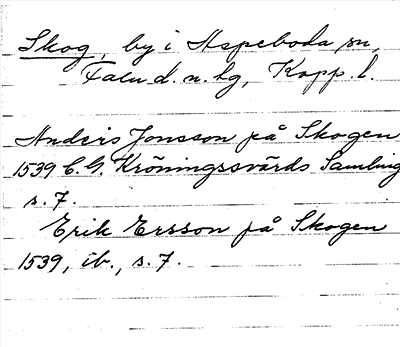 Skog, by i Aspeboda sn,
Falu d. n. bg, Kopp. l.
Anders Jonsson på Skogen
1539 C. G. Kröningssvärds Samling
s. 7.
Erik Ersson på Skogen
1539, ib., s. 7.